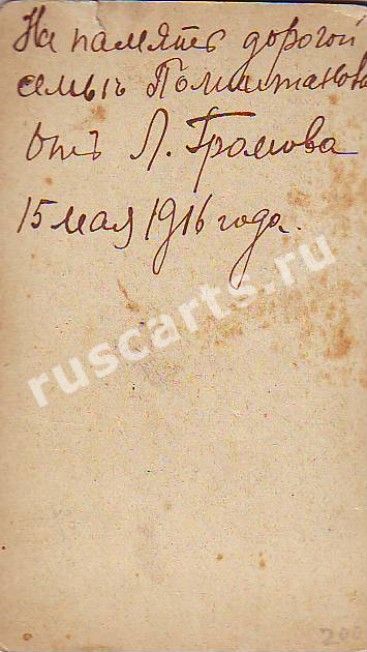 На память дорогой
семьѣ
Отъ Л. Громова
15 мая 1916 года.
ruscarts.ru
200